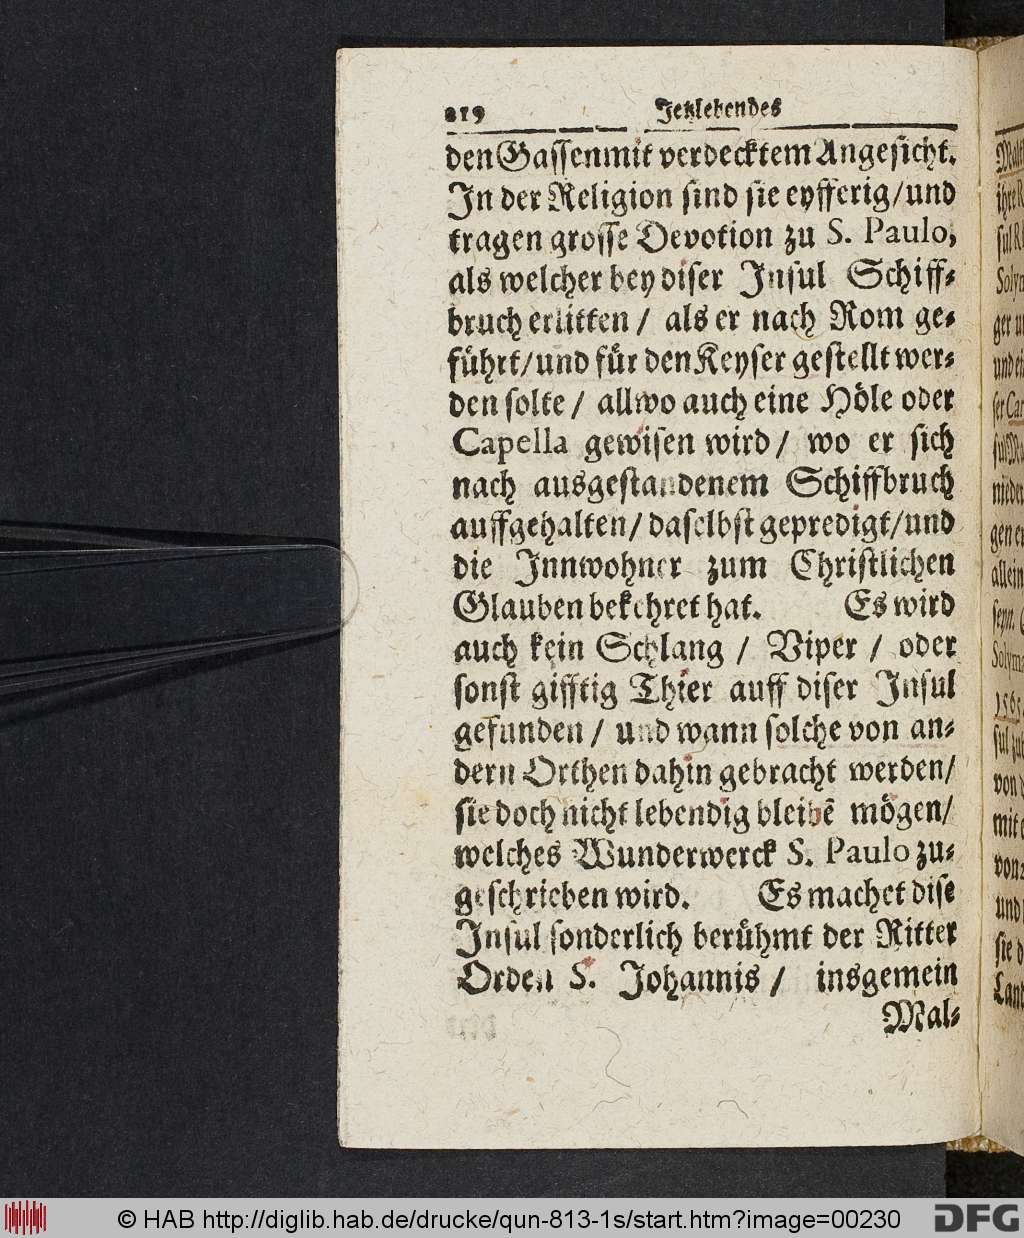 219 Jetzlebendes
den Gassen mit verdecktem Angesicht.
In der Religion sind sie eyfferig/und
tragen grosse Devotion zu S. Paulo,
als welcher bey diser Insul Schiff-
bruch erlitten / als er nach Rom ge-
führt/und für den Keyser gestellt wer-
den solte / allwo auch eine Höle oder
Capella gewisen wird / wo er sich
nach ausgestandenem Schiffbruch
auffgehalten/ daselbst gepredigt/und
die Innwohner zum Christlichen
Glauben bekehret hat. Es wird
auch kein Schlang / Viper / oder
sonst gifftig Thier auff diser Insul
gefunden / und wann solche von an-
dern Orthen dahin gebracht werden/
sie doch nicht lebendig bleibē mögen/
welches Wunderwerck S. Paulo zu-
geschrieben wird. Es machet dise
Insul sonderlich berühmt der Ritter
Orden S. Johannis / insgemein
Mal-
© HAB http://diglib.hab.de/drucke/qun-813-1s/start.htm?image=00230
DFG